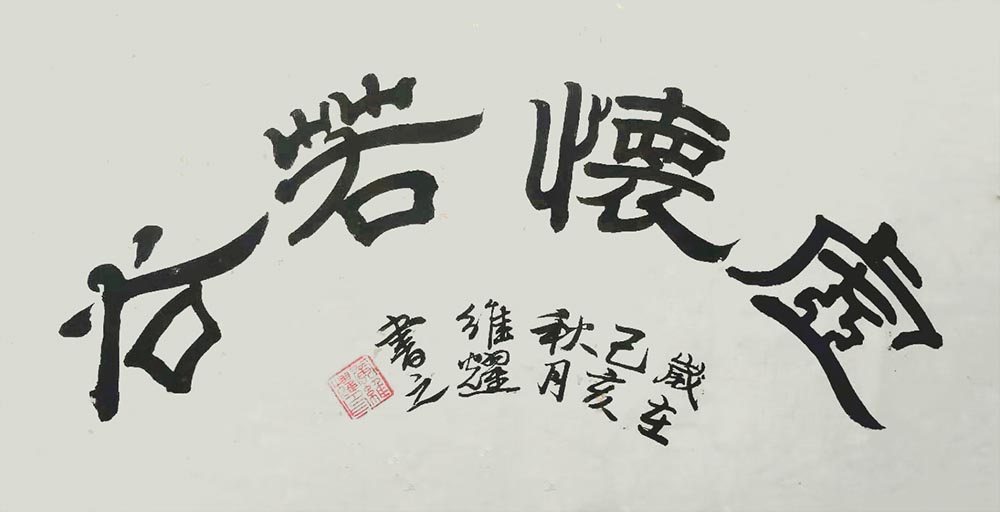 虚懷若谷
歲在
己亥
秋月
維耀
書之